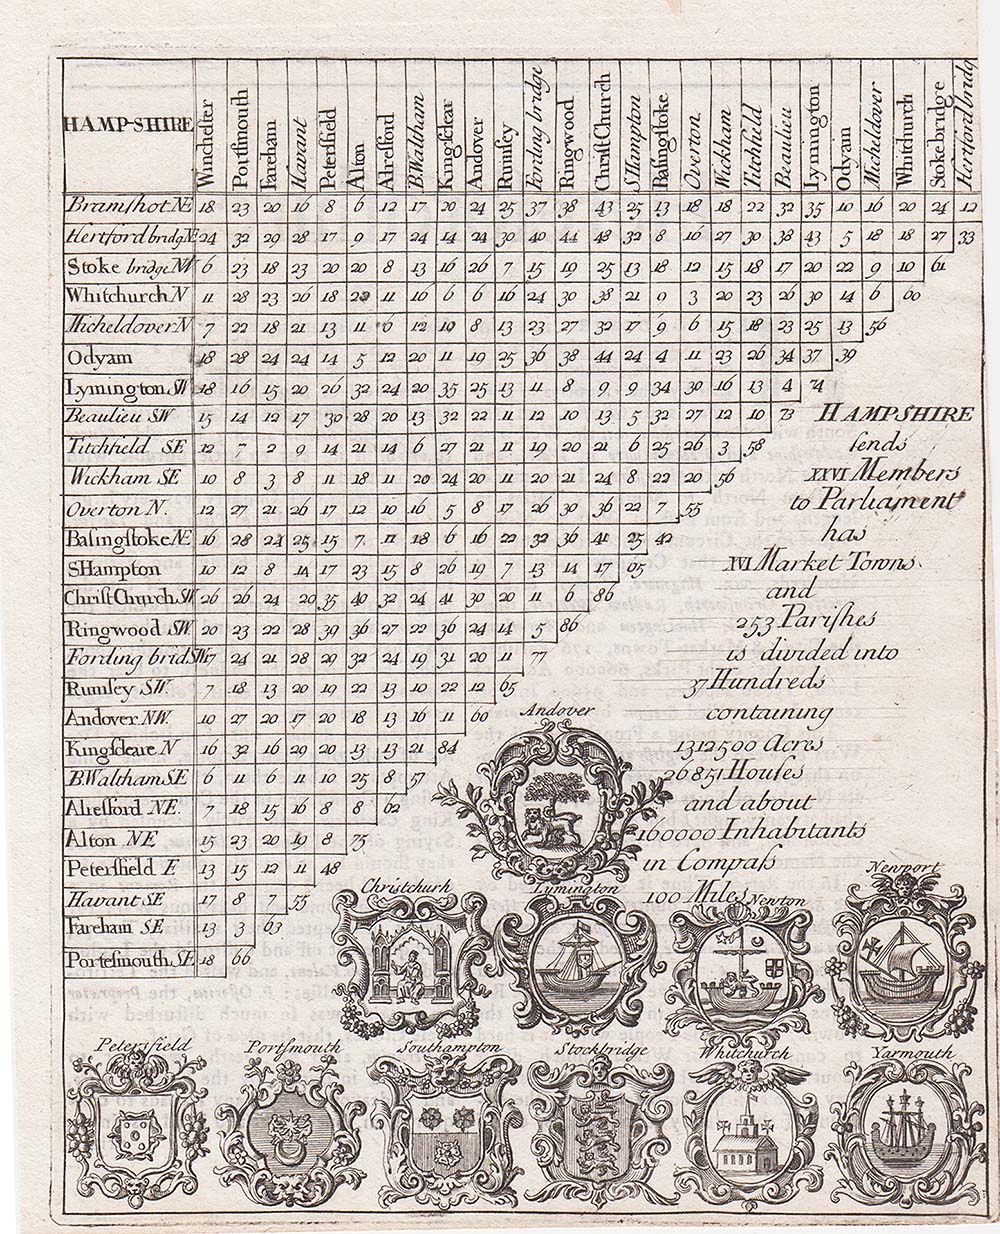 HAMP-SHIRE Winchester Portsmouth Fareham Havant Petersfield Alton Alresford B.Waltham Kingsclear Andover Rumsey Fording bridge Ringwood Christ Church S.Hampton Basingstoke Overton Wickham Titchfield Beaulieu Lymington Odyam Micheldover Whitchurch Stokebridge Hertfordbridg
Bramshot NE 18 23 20 16 8 6 12 17 20 24 25 37 38 43 25 13 18 18 22 32 35 10 16 20 24 12
Hertford bridg NE 24 32 29 28 17 9 17 24 14 24 30 40 44 48 32 8 16 27 30 38 43 5 18 18 27 33
Stoke bridge NW 6 23 18 23 20 20 8 13 16 26 7 15 19 25 13 18 12 15 18 17 20 22 9 10 61
Whitchurch N 11 28 23 26 18 11 16 6 6 16 24 30 38 21 9 3 20 23 26 30 14 6 60
Micheldover N 7 22 18 21 13 11 6 12 10 8 13 23 27 32 17 9 6 15 18 23 25 13 56
Odyam 18 28 24 24 14 5 12 20 11 19 25 36 38 44 24 4 11 23 26 34 37 39
Lymington SW 18 16 15 20 26 32 24 20 35 25 13 11 8 9 9 34 30 16 13 4 74
Beaulieu SW 15 14 12 17 30 28 20 13 32 22 11 12 10 13 5 32 27 12 10 73
Titchfield SE 12 7 2 9 14 21 14 6 27 21 11 19 20 21 6 25 26 3 58
Wickham SE 10 8 3 8 11 18 11 20 24 20 11 20 21 24 8 22 20 56
Overton N. 12 27 21 26 17 12 10 16 5 8 17 26 30 36 22 7 55
Basingstoke NE 16 28 24 25 15 7 11 18 6 16 22 32 36 41 25 42
SHampton 10 12 8 14 17 23 15 8 26 19 7 13 14 17 65
Christ Church SW 26 26 24 20 35 40 32 24 41 30 20 11 6 86
Ringwood SW. 20 23 22 28 39 36 27 22 36 24 14 5 86
Fording brid SW 17 24 21 28 29 32 24 19 31 20 11 77
Rumsey SW. 7 18 13 20 19 22 13 10 22 12 65
Andover NW. 10 27 20 17 20 18 13 16 11 60
Kingscleare N 16 32 16 29 20 13 13 21 84
B.Waltham SE 6 11 6 11 10 25 8 57
Alresford NE. 7 18 15 16 8 8 62
Alton NE 15 23 20 19 8 75
Petersfield E 13 15 12 11 48
Havant SE 17 8 7 55
Fareham SE 13 4 63
Portesmouth SE 18 66
HAMPSHIRE
sends
XXVI Members
to Parliament
has
XVI Market Towns
and
253 Parishes
is divided into
37 Hundreds
containing
1312500 Acres
26851 Houses
and about
160000 Inhabitants
in Compass
100 Miles
Andover
Christchurh
Lymington
Newton
Newport
Petersfield
Portsmouth
Southampton
Stockbridge
Whitchurch
Yarmouth